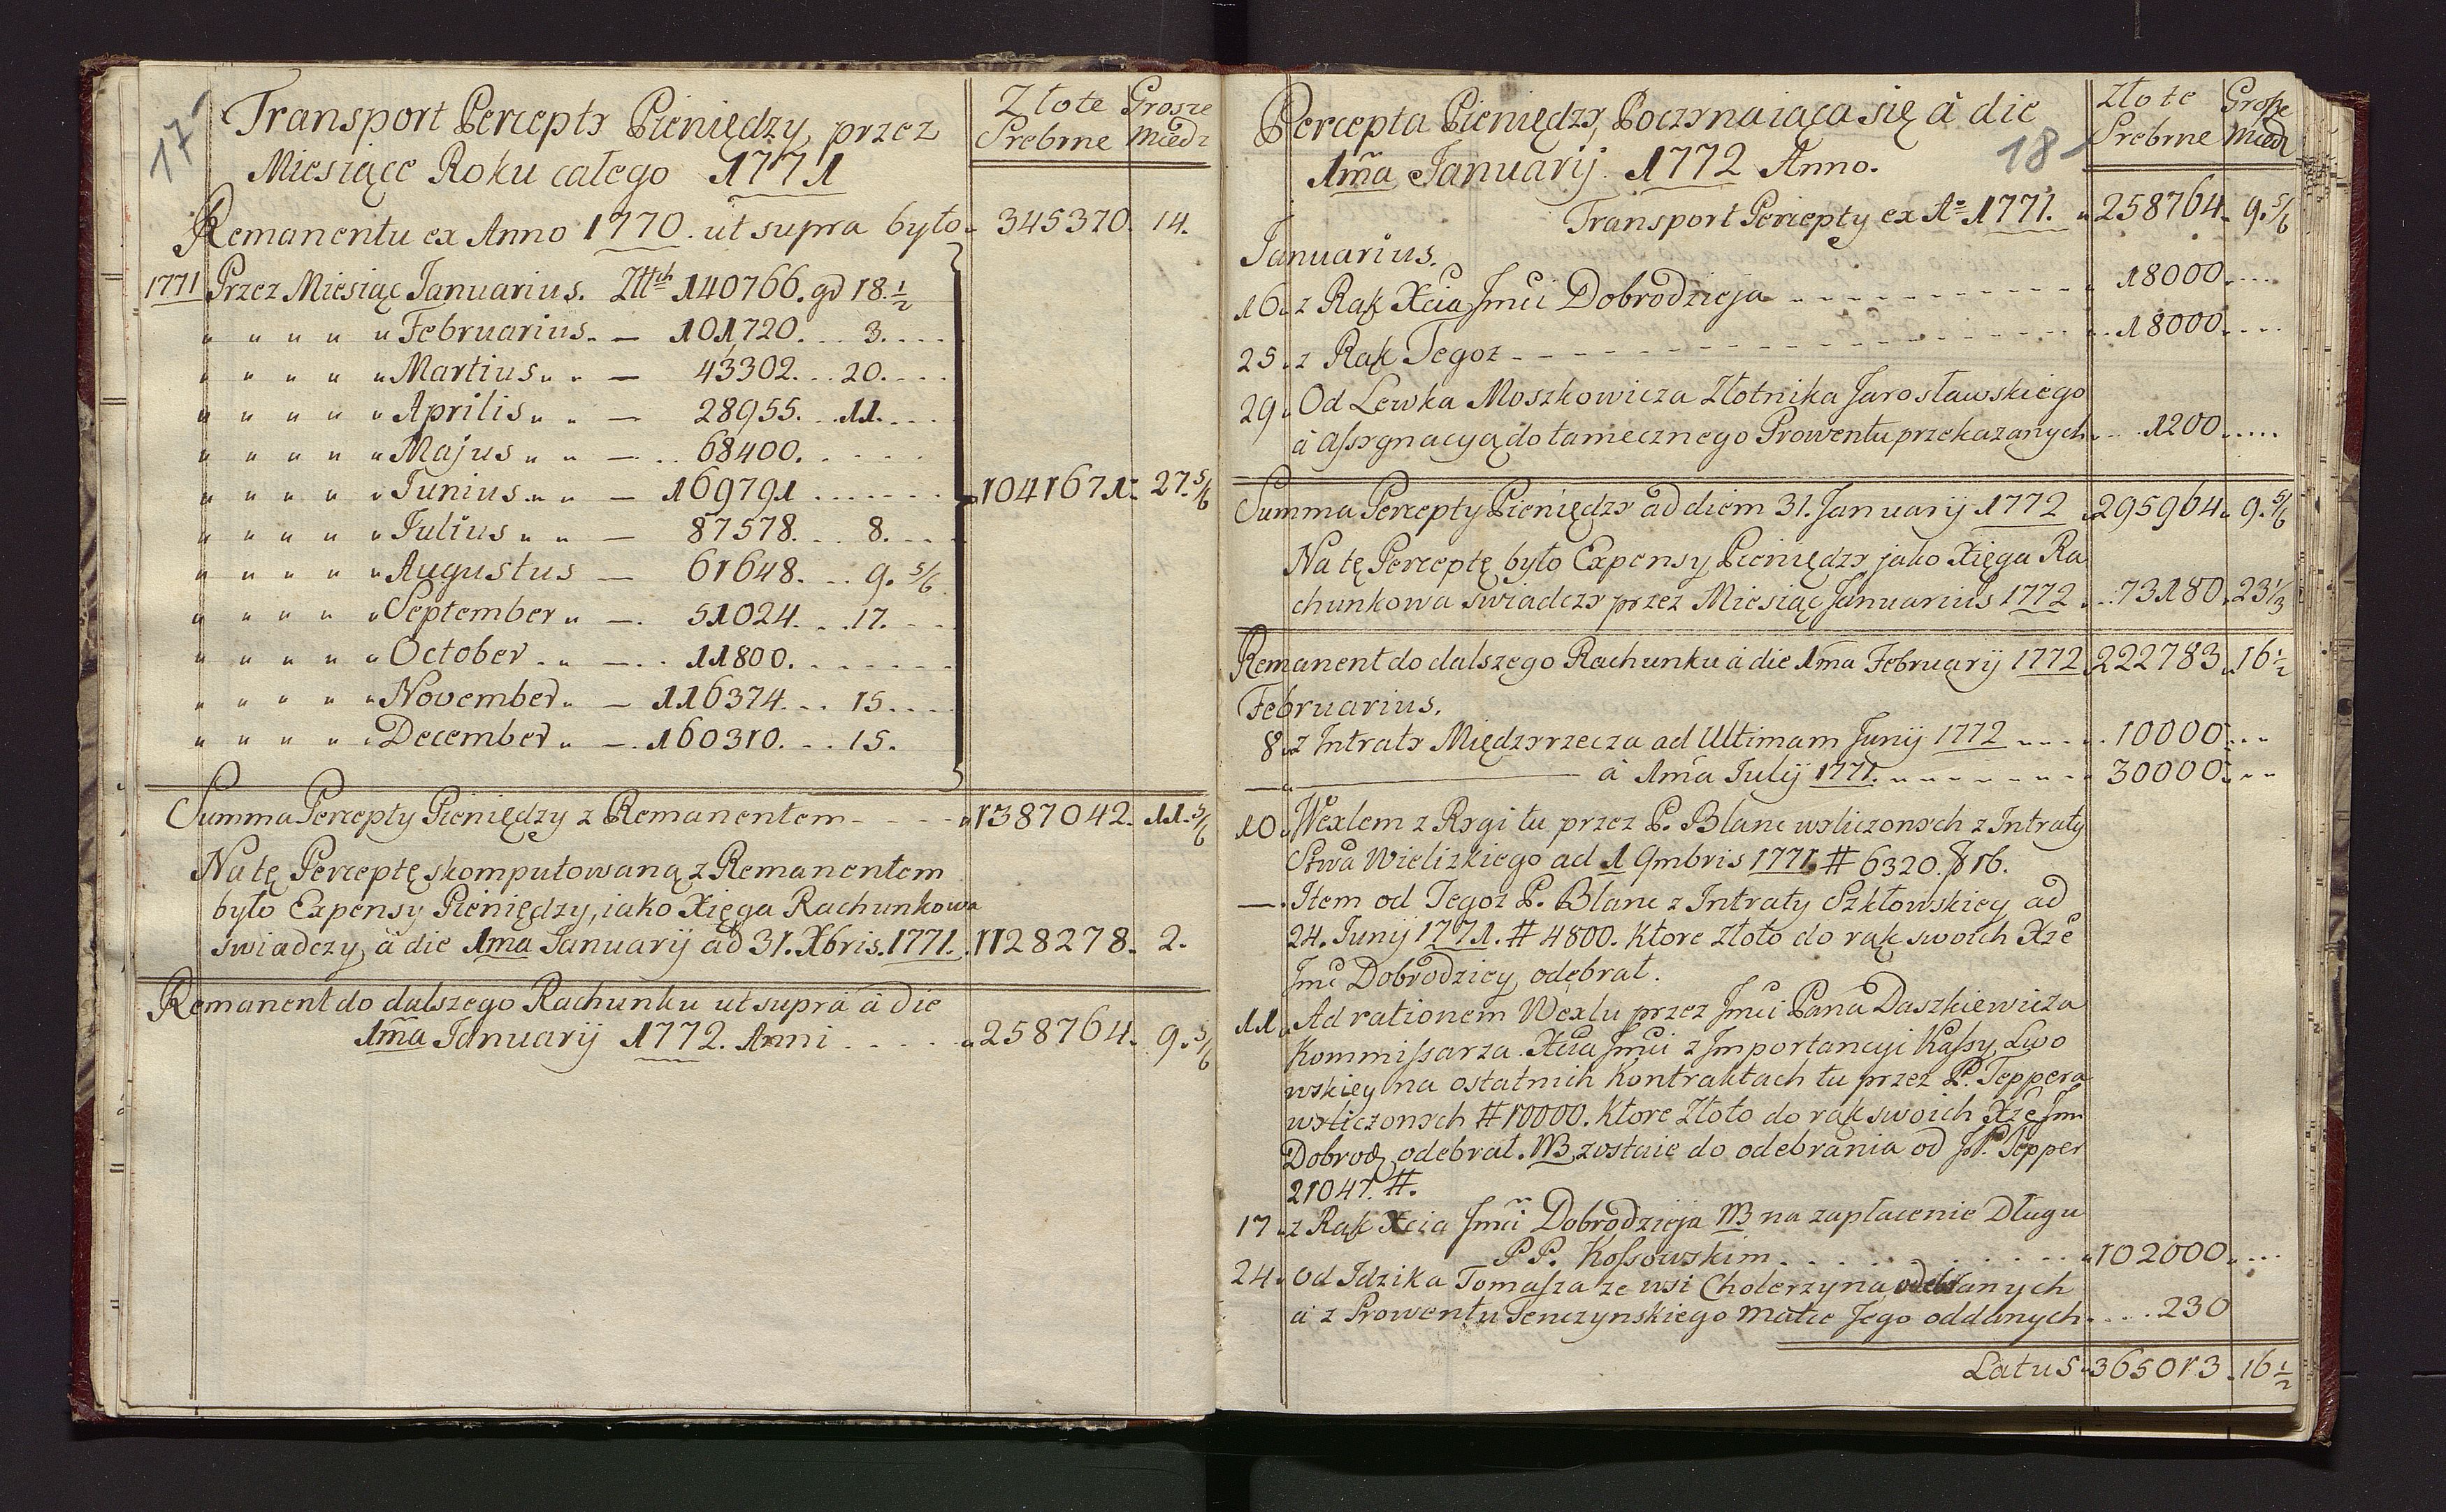 17
Transport Percepty Pieniędzy, przez
Miesiące Roku całego 1771
Złote Srebrne
Grosze Miedz
Remanentu ex Anno 1770. ut supra było 345370. 14.
1771 Przez Miesiąc Januarius. Złłch 140766. gr 18. 1/2
" " " " " Februarius. — 101,720. .. 3. ....
" " " " " Martius " " — 43302. .. 20. ...
" " " " " Aprilis " " — 28955. .. 11. ....
" " " " " Majus " " — .. 68400. .....
" " " " " Junius " " — 169791 ....... 1041671. 27. 5/6
" " " " " Julius " " — 87578. .. 8. ...
" " " " " Augustus — 61648. .. 9. 5/6
" " " " " September " — 51024. .. 17. ...
" " " " " October . " — .. 11800. .......
" " " " " November " — 116374. .. 15. ...
" " " " " December " — 160310. .. 15.
Summa Percepty Pieniędzy z Remanentem - - - - 1387042. 11. 5/6
Na tę Perceptę skomputowaną z Remanentem
było Expensy Pieniędzy, iako Xięga Rachunkowa
swiadczy, à die 1ma Januarij ad 31. Xbris. 1771. 1128278. 2.
Remanent do dalszego Rachunku ut supra à die
1ma Januarij 1772. Anni ..... 258764. 9. 5/6
Percepta Pieniędzy, Poczynaiąca się à die
18
1ma Januarij 1772 Anno.
Złote Srebrne
Grosze Miedz
Transport Percepty ex Ao 1771. 258764. 9. 5/6
Januarius.
16. z Rąk Xcia Jmci Dobrodzieja - - - - - - 18000. ....
25. z Rąk Tegoż - - - - - - - - 18000. ....
29. Od Lewka Moszkowicza Złotnika Jarosławskiego
à assygnacyą do tamecznego Prowentu przekazanych. 1200. ....
Summa Percepty Pieniędzy ad diem 31. Januarij 1772 295964. 9. 5/6
Na tę Perceptę było Expensy Pieniędzy jako Xięga Ra
chunkowa swiadczy przez Miesiąc Januarius 1772 . 73180. 23 1/3
Remanent do dalszego Rachunku à die 1ma Februarij 1772 222783. 16 1/2
Februarius.
8. z Intraty Międzyrzecza ad Ultimam Junij 1772 .... 10000. ...
— à 1ma Julij 1771. - - - - - - 30000. ...
10. Wexlem z Rygi tu przez P. Blanc wyliczonych z Intraty
Stwa Wielizkiego ad 1 9mbris 1771 # 6320. f 16.
— Item od Tegoż P. Blanc z Intraty Szkłowskiey ad
24. Junij 1771. # 4800. Ktore złoto do rąk swoich Xżę
Jmć Dobrodziey odebrał.
11. Ad rationem Wexlu przez Jmci Pana Daszkiewicza
Kommissarza Xcia Jmci z Importancyi Kassy Lwo
wskiey na ostatnich Kontraktach tu przez P. Teppera
wyliczonych # 10000. Ktore złoto do rąk swoich Xżę Jm
Dobrodz. odebrał. NB zostaie do odebrania od JP. Tepper
21047. #.
17. z Rąk Xcia Jmci Dobrodzieja NB na zapłacenie Długu
PP. Kossowskim ........ 102000. ...
24. Od Idzika Tomasza ze wsi Cholerzyna odebranych
à z Prowentu Tenczynskiego Matce Jego oddanych .... 230
Latus 365013. 16 1/2